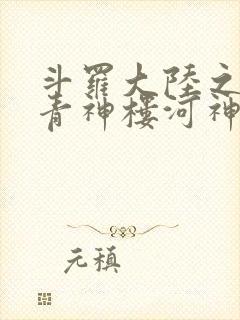 斗羅大陸之
青神樓河神
元稹